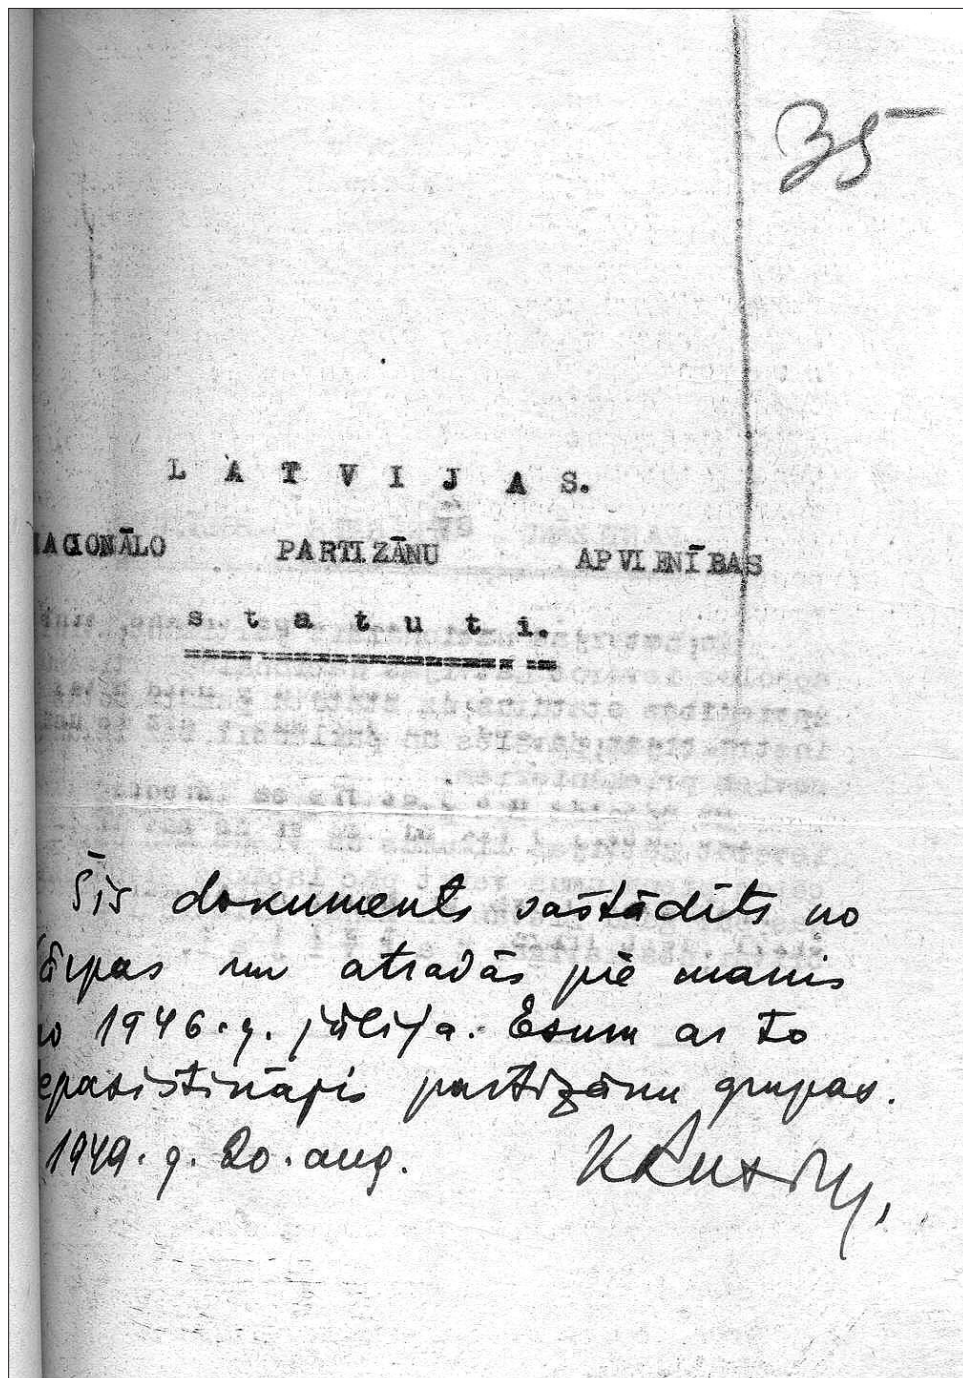 35
LATVIJAS.
NACIONĀLO PARTIZĀNU APVIENĪBAS
statuti.
Šis dokuments sastādīts no
Kārpas un atradās pie manis
no 1946.g. jūlija. Esmu ar to
iepazīstinājis partizānu grupas.
1949.g. 20.aug.